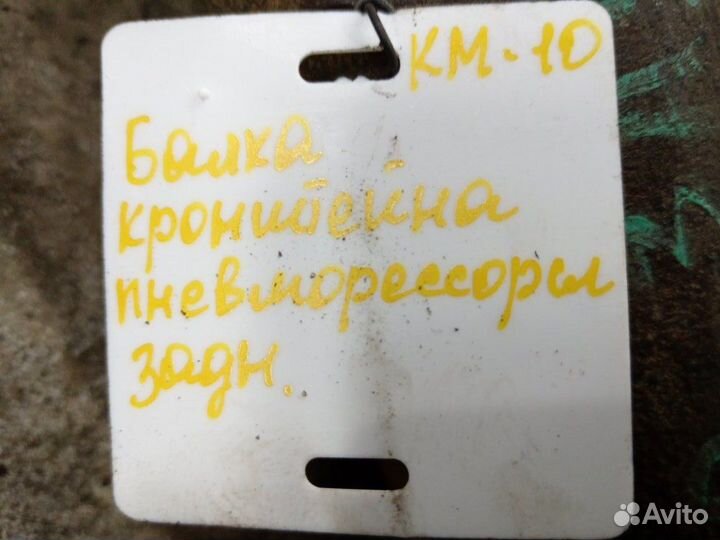 КМ-10
Балка
кронштейна
пневморессоры
задн.
Avito